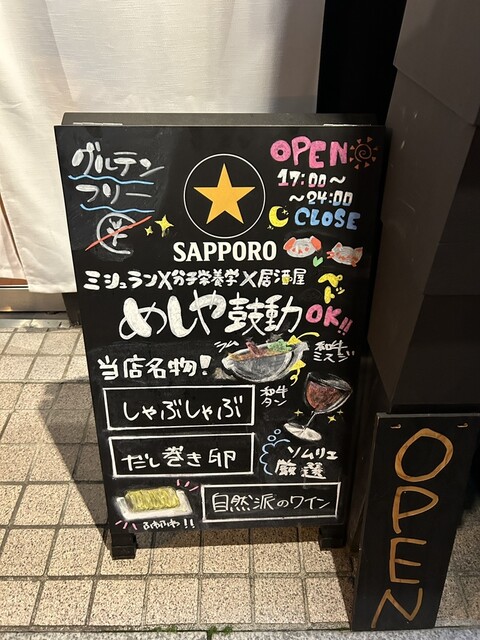 グルテン
フリー
OPEN
17:00〜
〜24:00
CLOSE
SAPPORO
ミシュラン×分子栄養学×居酒屋
めしや鼓動
ペット
OK!!
当店名物!
ラム
和牛
ミスジ
和牛
タン
しゃぶしゃぶ
だし巻き卵
ソムリエ
厳選
自然派のワイン
ふわふわ!!
OPEN